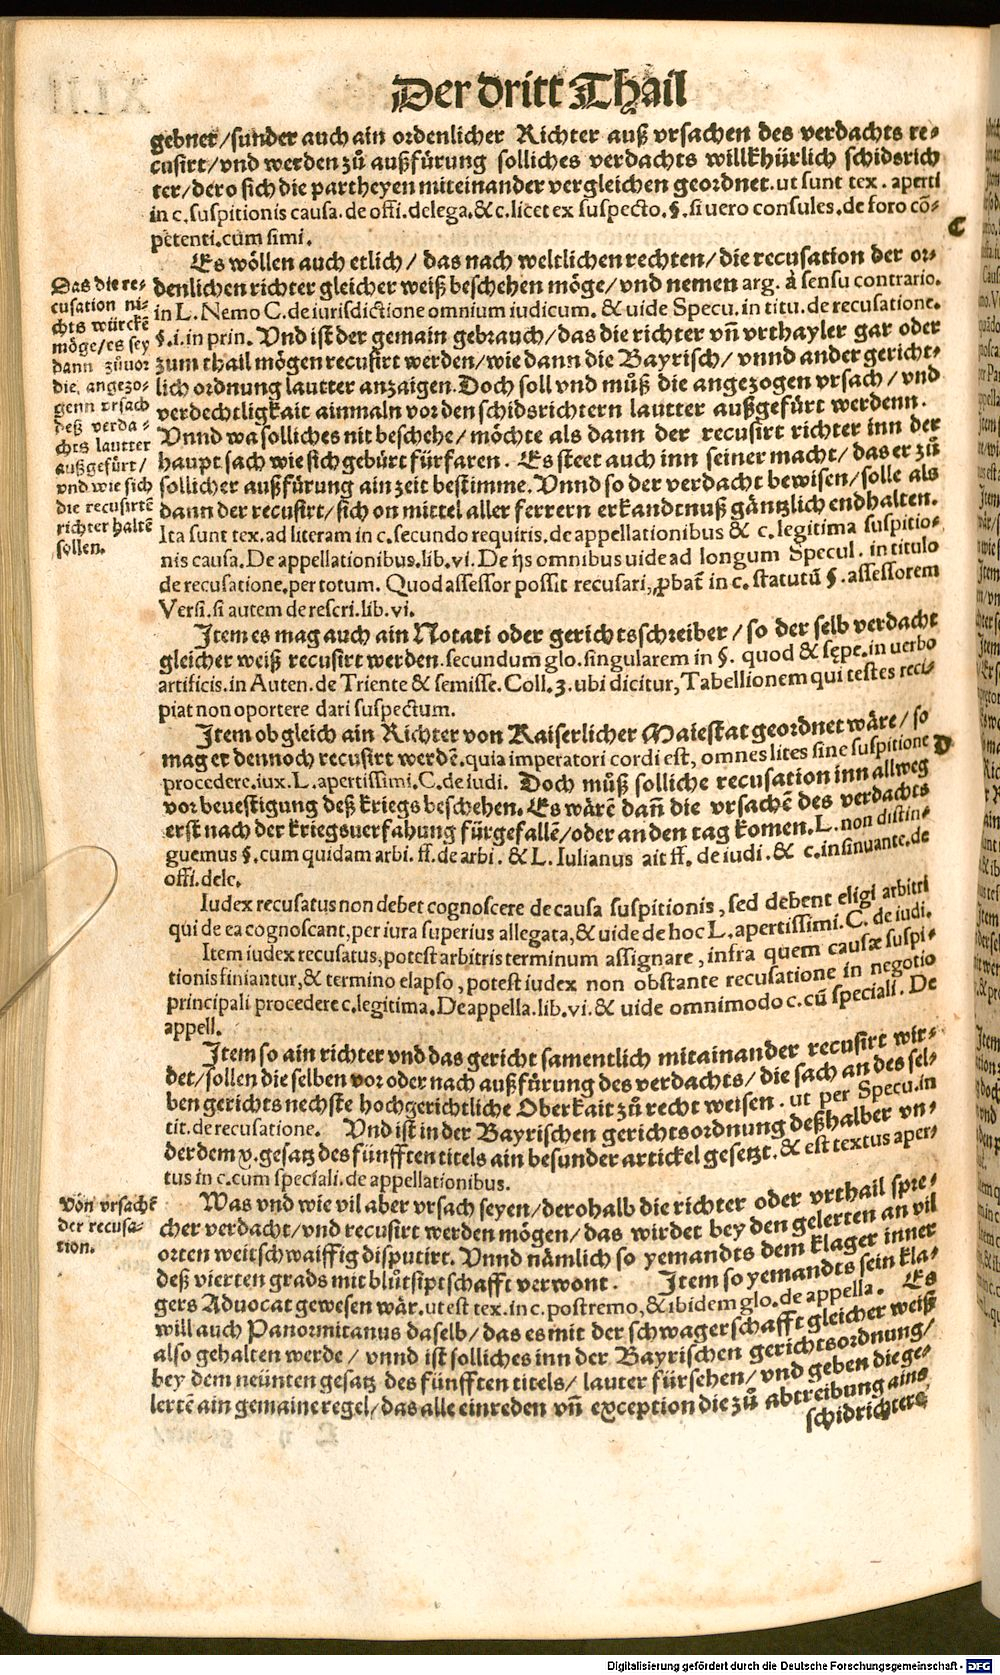 Der dritt Thail
gebner/sunder auch ain ordenlicher Richter auß vrsachen des verdachts re-
cusirt/vnd werden zů außfürung solliches verdachts willkhürlich schidsrich
ter/dero sich die partheyen miteinander vergleichen geordnet. ut sunt tex. aperti
in c. suspitionis causa. de offi. delega. & c. licet ex suspecto. §. si uero consules. de foro cō-
petenti. cum simi.
C
Es wöllen auch etlich/ das nach weltlichen rechten/ die recusation der or-
denlichen richter gleicher weiß beschehen möge/ vnd nemen arg. à sensu contrario.
in L. Nemo C. de iurisdictione omnium iudicum. & uide Specu. in titu. de recusatione.
§. i. in prin. Vnd ist der gemain gebrauch/ das die richter vñ vrthayler gar oder
zum thail mögen recusirt werden/ wie dann die Bayrisch/ vnnd ander gericht-
lich ordnung lautter anzaigen. Doch soll vnd můß die angezogen vrsach/ vnd
verdechtligkait ainmaln vor den schidsrichtern lautter außgefürt werdenn.
Vnnd wa solliches nit beschehe/ möchte als dann der recusirt richter inn der
haupt sach wie sich gebürt fürfaren. Es steet auch inn seiner macht/ das er zů
sollicher außfürung ain zeit bestimme. Vnnd so der verdacht bewisen/ solle als
dann der recusirt/ sich on mittel aller ferrern erkandtnuß gäntzlich endhalten.
Ita sunt tex. ad literam in c. secundo requiris. de appellationibus & c. legitima suspitio-
nis causa. De appellationibus. lib. vi. De ijs omnibus uide ad longum Specul. in titulo
de recusatione. per totum. Quod assessor possit recusari, ꝓbat̃ in c. statutū §. assessorem
Versi. si autem de rescri. lib. vi.
Das die re-
cusation ni-
chts würckẽ
möge/ es sey
dann zůuor
die, angezo-
genn vrsach
deß verda-
chts lautter
außgefürt/
vnd wie sich
die recusirtẽ
richter haltẽ
sollen.
Item es mag auch ain Notari oder gerichtsschreiber/ so der selb verdacht
gleicher weiß recusirt werden. secundum glo. singularem in §. quod & sępe. in uerbo
artificis. in Auten. de Triente & semisse. Coll. 3. ubi dicitur, Tabellionem qui testes reci-
piat non oportere dari suspectum.
Item ob gleich ain Richter von Kaiserlicher Maiestat geordnet wäre/ so
mag er dennoch recusirt werdẽ. quia imperatori cordi est, omnes lites sine suspitione
D
procedere. iux. L. apertissimi. C. de iudi. Doch můß solliche recusation inn allweg
vor beuestigung deß kriegs beschehen. Es wärẽ dañ die vrsachẽ des verdachts
erst nach der kriegsuerfahung fürgefallẽ/ oder an den tag komen. L. non distin-
guemus §. cum quidam arbi. ff. de arbi. & L. Iulianus ait ff. de iudi. & c. insinuante. de
offi. dele.
Iudex recusatus non debet cognoscere de causa suspitionis, sed debent eligi arbitri
qui de ea cognoscant, per iura superius allegata, & uide de hoc L. apertissimi. C. de iudi.
Item iudex recusatus, potest arbitris terminum assignare, infra quem causæ suspi-
tionis finiantur, & termino elapso, potest iudex non obstante recusatione in negotio
principali procedere c. legitima. De appella. lib. vi. & uide omnimodo c. cū speciali. De
appell.
Item so ain richter vnd das gericht samentlich mitainander recusirt wir-
det/ sollen die selben vor oder nach außfürung des verdachts/ die sach an des sel-
ben gerichts nechste hochgerichtliche Oberkait zů recht weisen. ut per Specu. in
tit. de recusatione. Vnd ist in der Bayrischen gerichtsordnung deßhalber vn-
der dem x. gesatz des fünfften titels ain besunder artickel gesetzt. & est textus aper-
tus in c. cum speciali. de appellationibus.
Von vrsachẽ
der recusa-
tion.
Was vnd wie vil aber vrsach seyen/ derohalb die richter oder vrthail spre-
cher verdacht/ vnd recusirt werden mögen/ das wirdet bey den gelerten an vil
orten weitschwaiffig disputirt. Vnnd nämlich so yemandts dem klager inner
deß vierten grads mit blůtsiptschafft verwont. Item so yemandts sein kla-
gers Aduocat gewesen wär. ut est tex. in c. postremo, & ibidem glo. de appella. Es
will auch Panormitanus daselb/ das es mit der schwagerschafft gleicher weiß
also gehalten werde/ vnnd ist solliches inn der Bayrischen gerichtsordnung/
bey dem neünten gesatz des fünfften titels/ lauter fürsehen/ vnd geben die ge-
lertẽ ain gemaine regel/ das alle einreden vñ exception die zů abtreibung ains
schidrichters
Digitalisierung gefördert durch die Deutsche Forschungsgemeinschaft - DFG